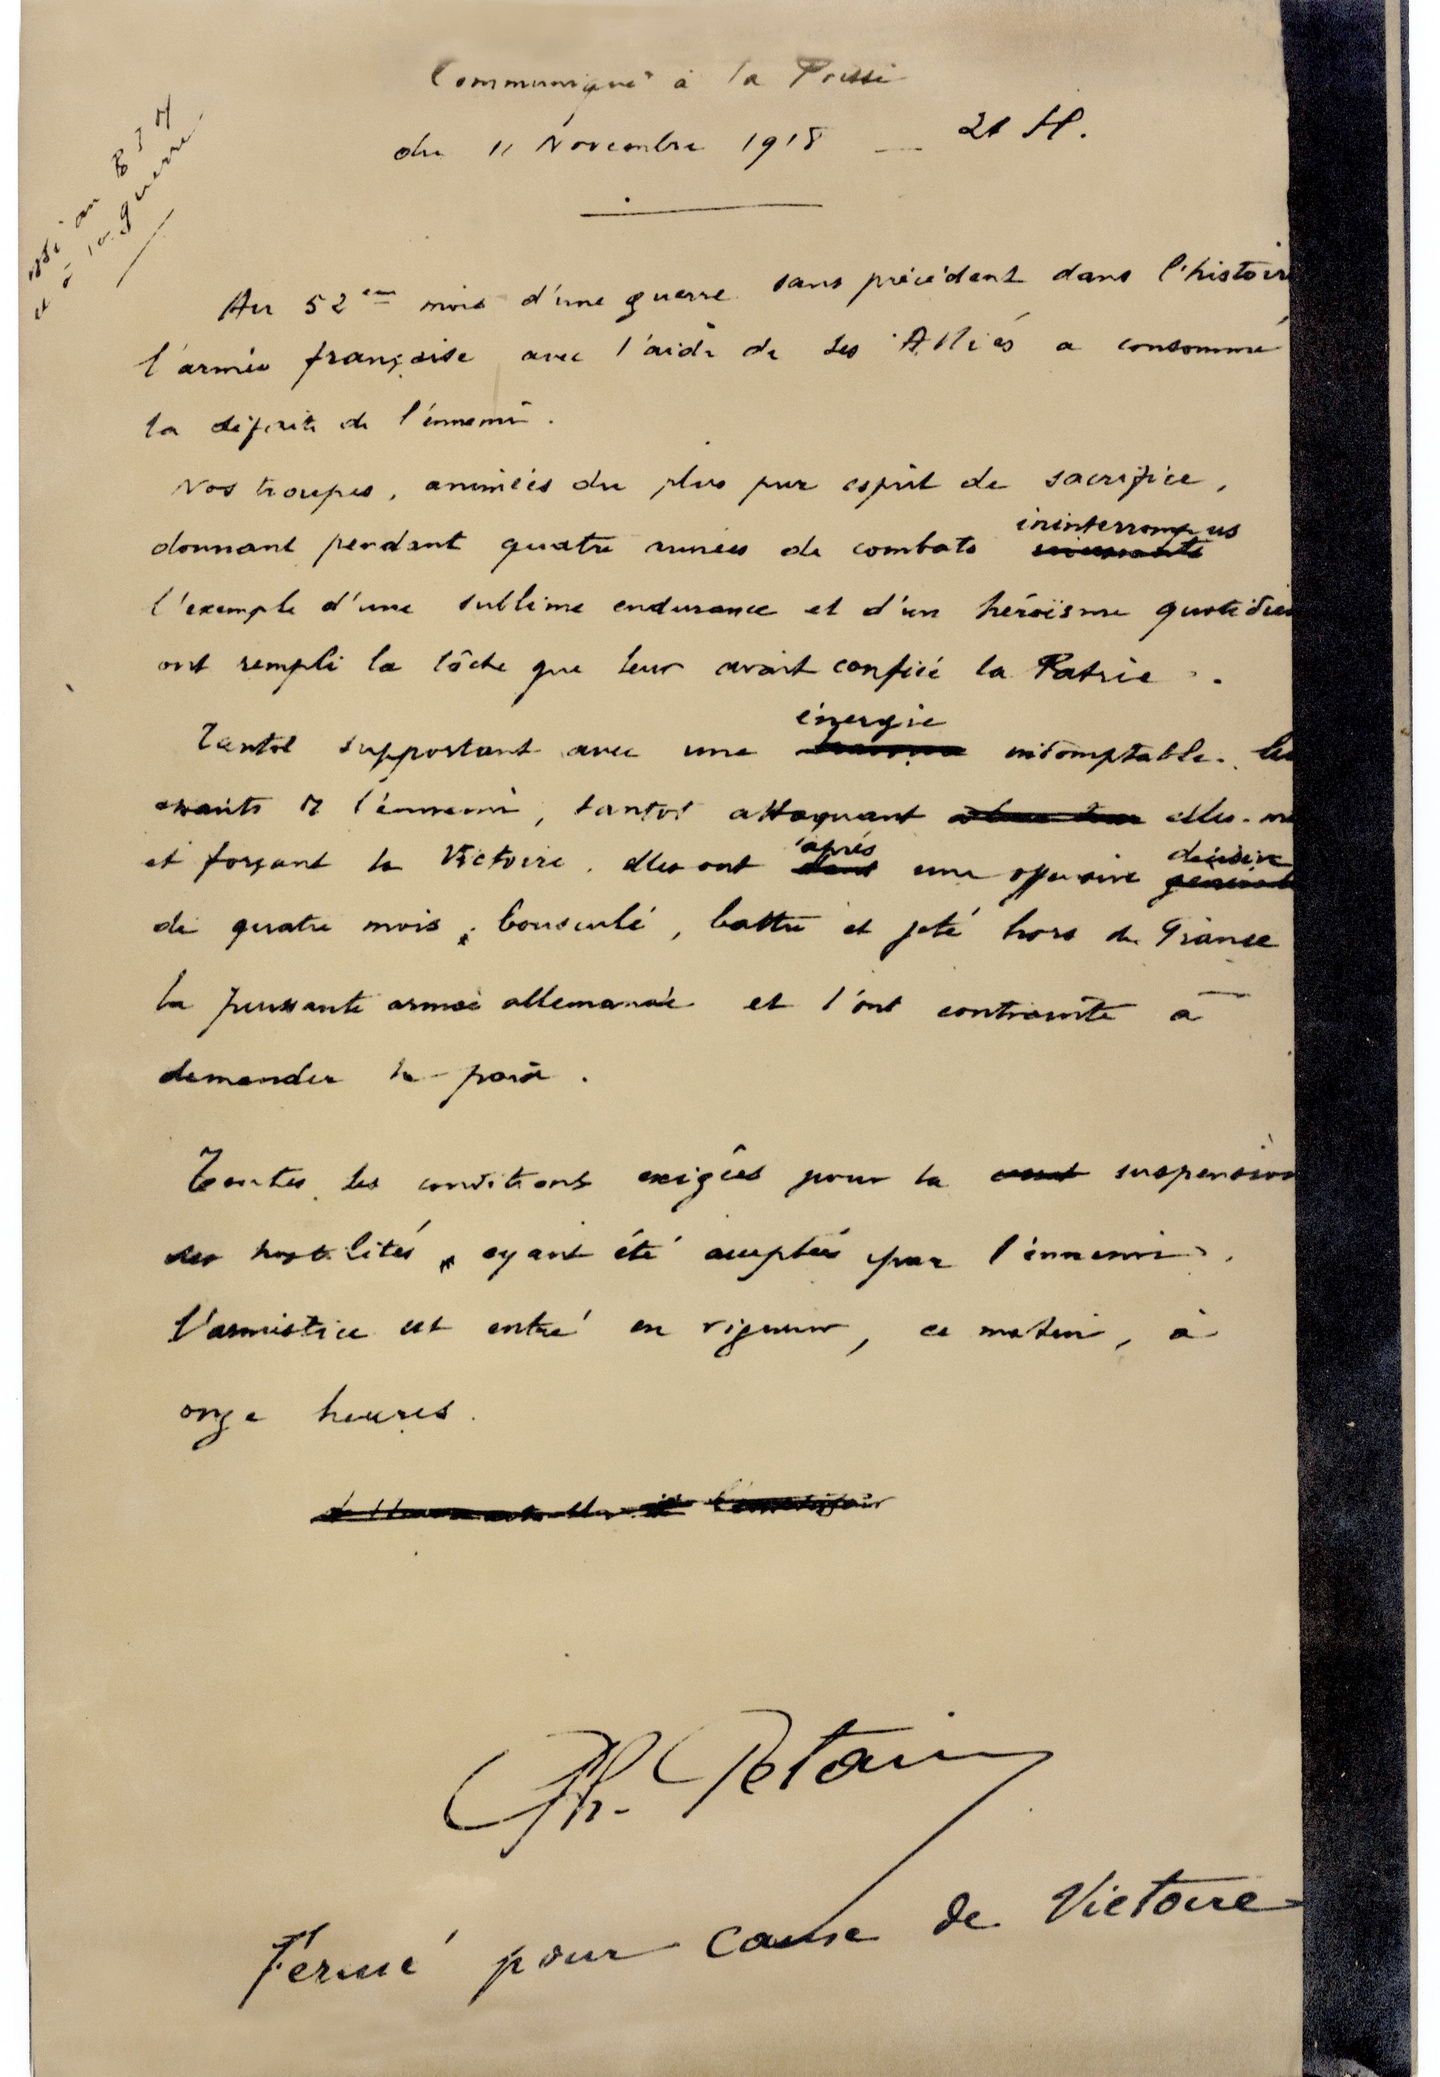 Communiqué à la Presse
du 11 Novembre 1918 — 21 H.
au
et à la guerre
Au 52ème mois d'une guerre sans précédent dans l'histoire
l'armée française avec l'aide de ses Alliés a consommé
la défaite de l'ennemi.
Nos troupes, animées du plus pur esprit de sacrifice,
ininterrompus
donnant pendant quatre années de combats incessants
l'exemple d'une sublime endurance et d'un héroïsme quotidien
ont rempli la tâche que leur avait confiée la Patrie.
énergie
Tantôt supportant avec une indomptable les
assauts de l'ennemi, tantôt attaquant elles-m
après décisive
et forçant la Victoire, elles ont dans une offensive générale
de quatre mois, bousculé, battu et jeté hors de France
la puissante armée allemande et l'ont contrainte à
demander la paix.
Toutes les conditions exigées pour la suspension
des hostilités, ayant été acceptées par l'ennemi,
l'armistice est entré en vigueur, ce matin, à
onze heures.
Ph. Petain
Fermé pour cause de Victoire